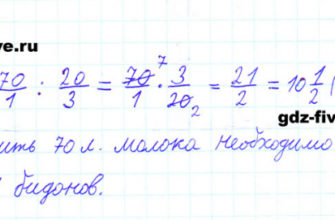 ve.ru
70/1 : 20/3 = 70/1 7 · 3/20 2 = 21/2 = 10 1/2 (
gdz-fiv
ить 70 л. молока необходимо
бидонов.